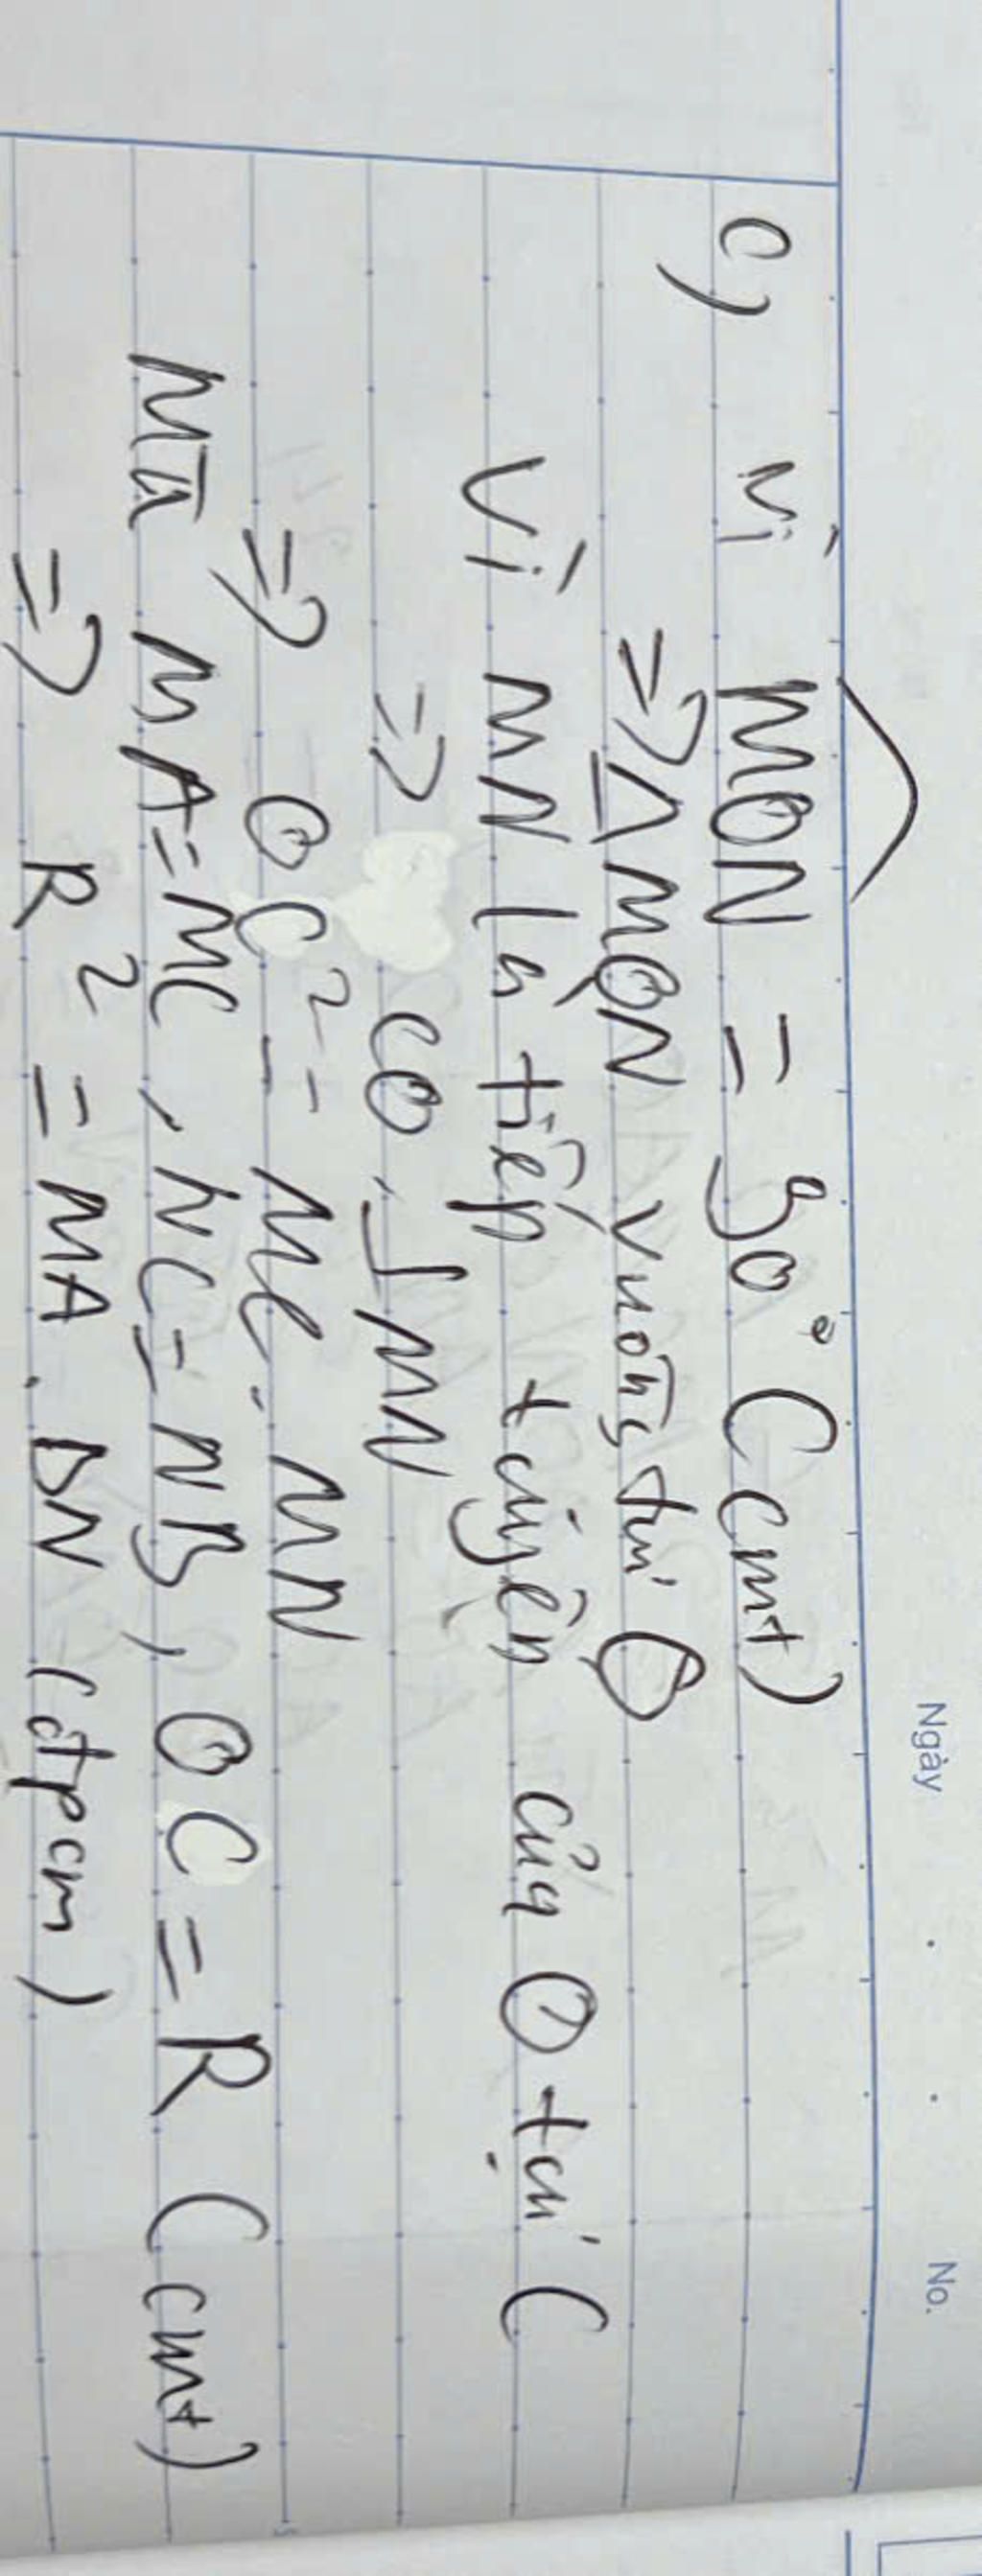 Ngày . . No.
c) Vì MON = 90° (cmt)
=> Δ MON vuông tại O
Vì MN là tiếp tuyến của O tại C
=> CO ⊥ MN
=> OC² = MC . MN
Mà MA = MC, NC = NB, OC = R (cmt)
=> R² = MA . BN (đpcm)